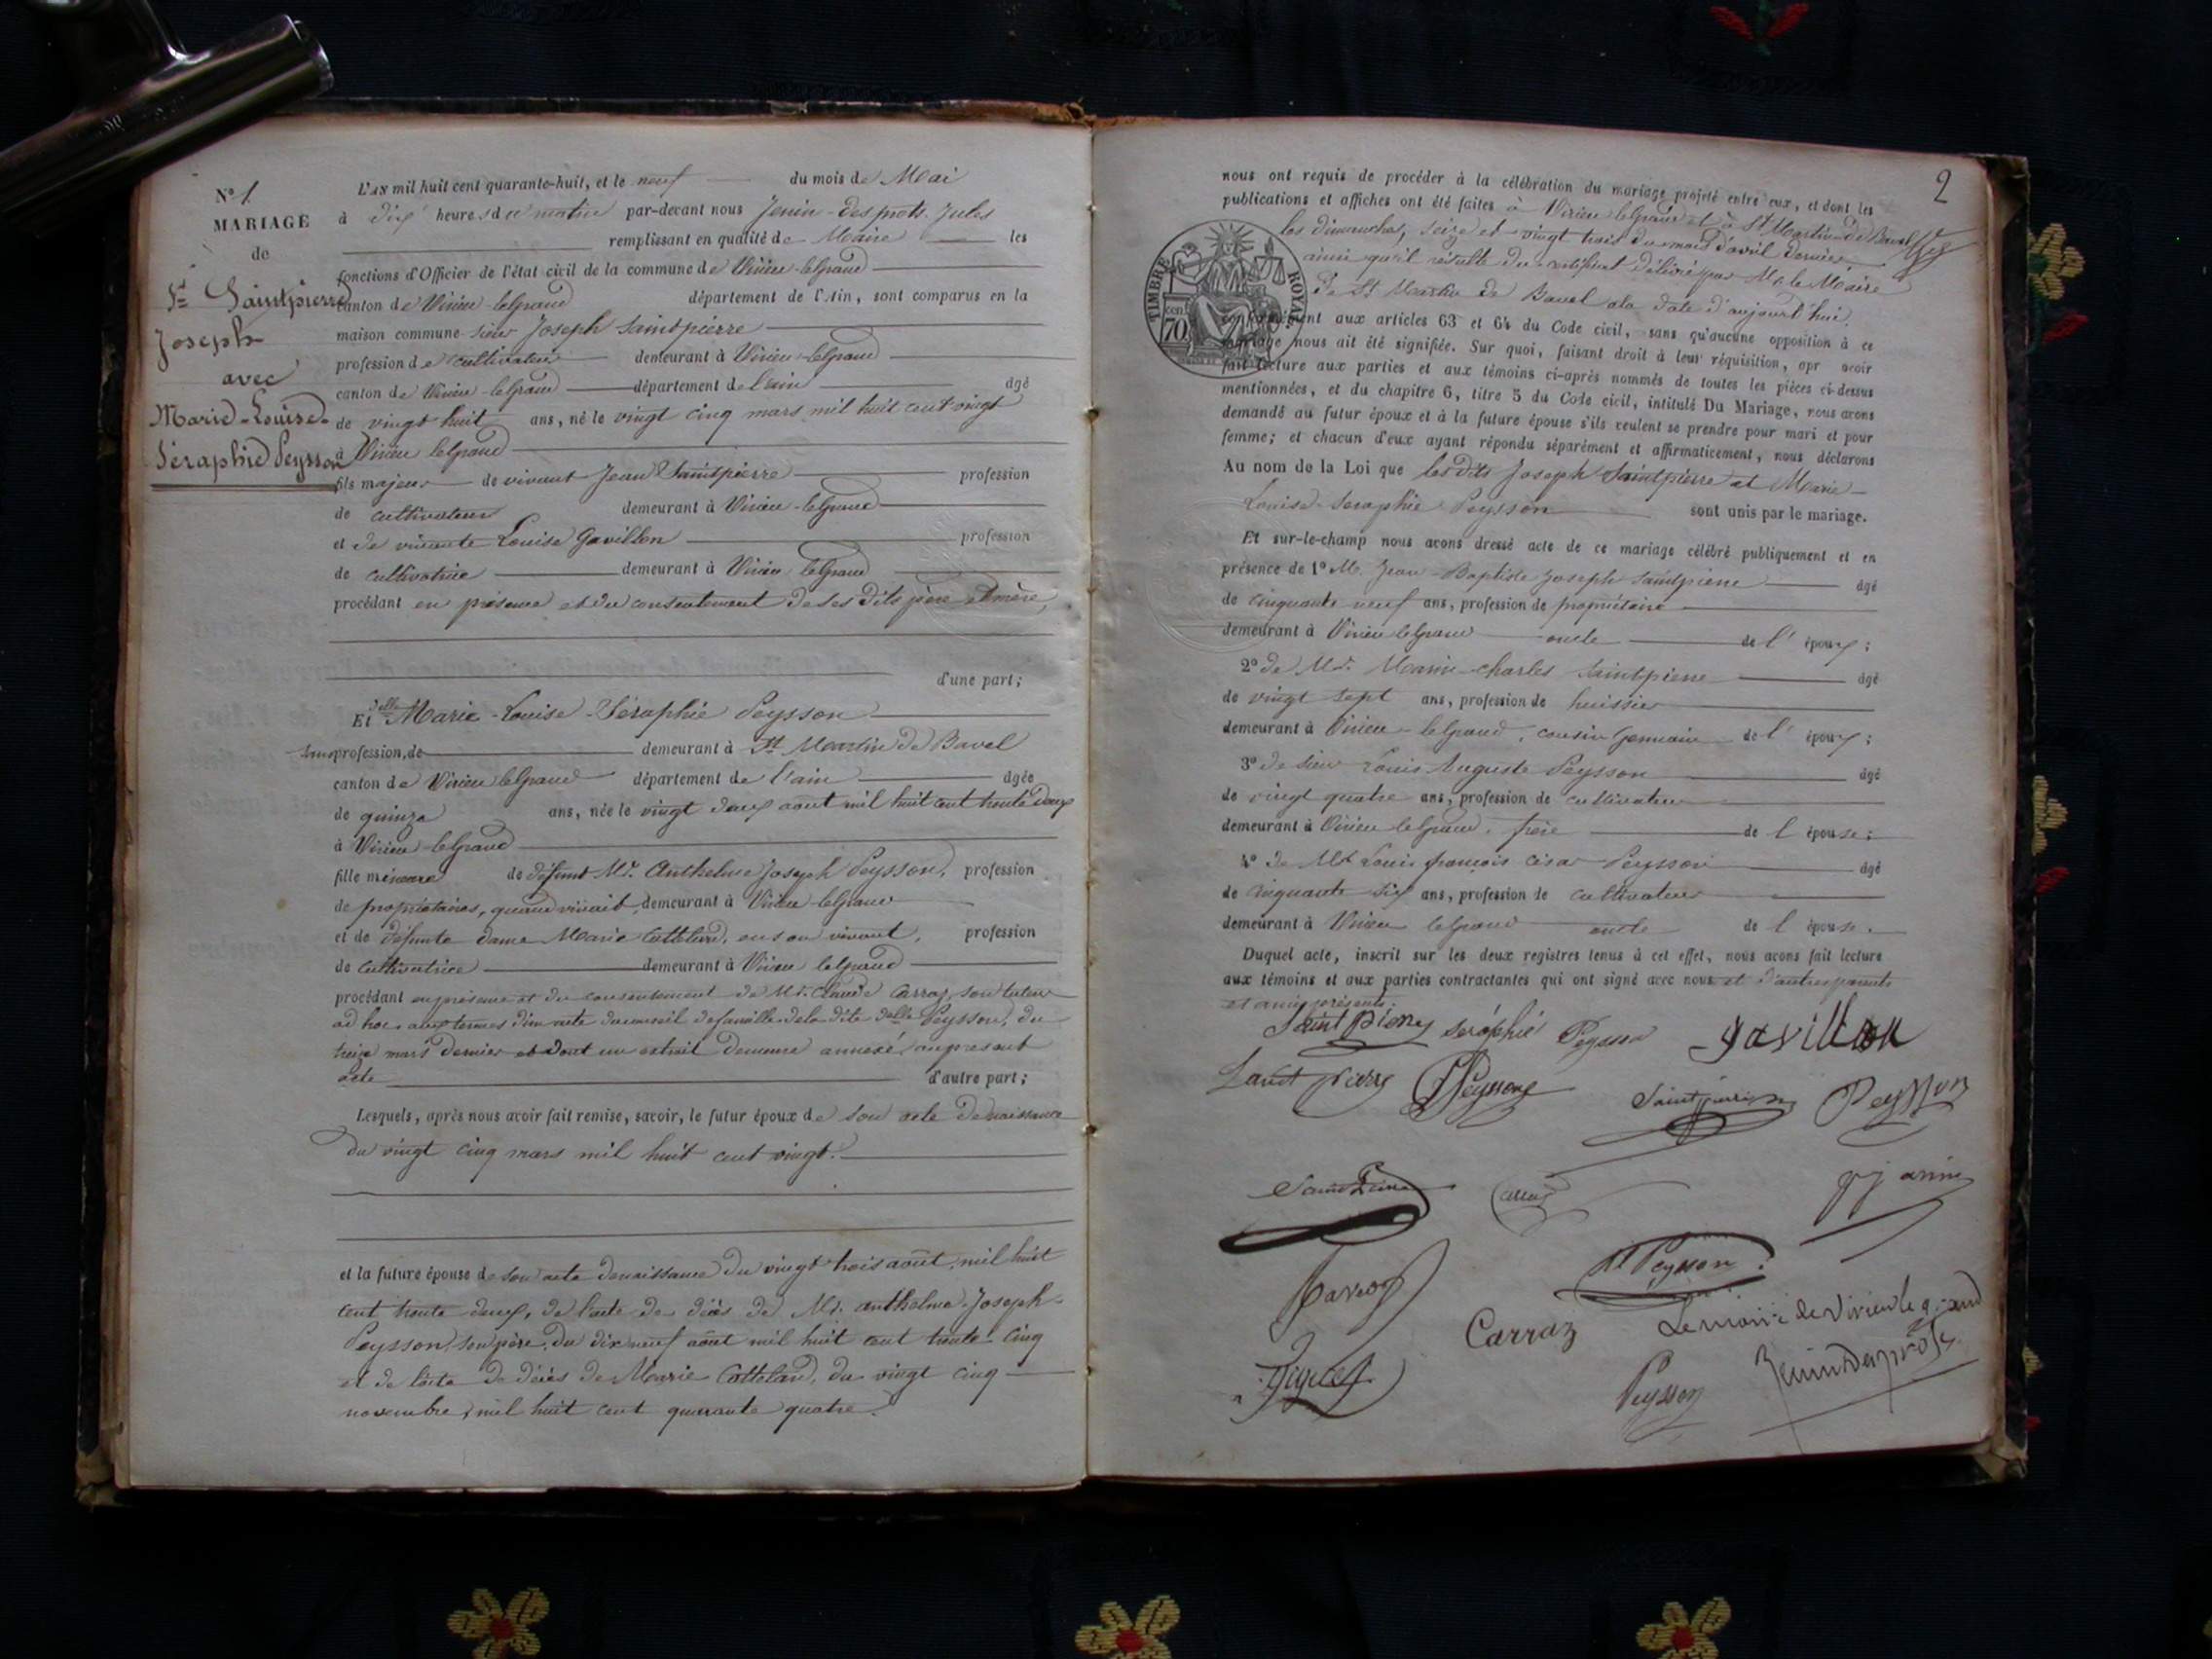 N° 1.
MARIAGE
de
Sr Saintpierre
Joseph
avec
Marie-Louise-
Séraphie Peysson
L'AN mil huit cent quarante-huit, et le neuf du mois de Mai
à dix heures du matin par-devant nous Jenin-Desprots Jules
remplissant en qualité de Maire les
fonctions d'Officier de l'état civil de la commune de Virieu-leGrand
canton de Virieu-leGrand département de l'Ain, sont comparus en la
maison commune sieur Joseph Saintpierre
profession de cultivateur demeurant à Virieu-leGrand
canton de Virieu-leGrand département de l'ain âgé
de vingt huit ans, né le vingt cinq mars mil huit cent vingt
à Virieu leGrand
fils majeur de vivant Jean Saintpierre profession
de cultivateur demeurant à Virieu-leGrand
et de vivante Louise Gavillon profession
de cultivatrice demeurant à Virieu leGrand
procédant en présence et du consentement de ses dits père et mère,
d'une part;
Et delle Marie-Louise-Séraphie Peysson
sans profession, de demeurant à St Martin de Bavel
canton de Virieu leGrand département de l'ain âgée
de quinze ans, née le vingt deux août mil huit cent trente deux
à Virieu-leGrand
fille mineure de défunt Mr. Anthelme Joseph Peysson, profession
de propriétaire, quand vivait, demeurant à Virieu leGrand
et de défunte dame Marie Catteland, en son vivant, profession
de cultivatrice demeurant à Virieu leGrand
procédant en présence et du consentement de Mr. Claude Carraz, son tuteur
ad hoc, aux termes d'un acte du conseil de famille de la dite delle Peysson, du
treize mars dernier et dont un extrait demeure annexé au présent
acte d'autre part;
Lesquels, après nous avoir fait remise, savoir, le futur époux de son acte de naissance
du vingt cinq mars mil huit cent vingt.
et la future épouse de son acte de naissance du vingt trois août, mil huit
cent trente deux, de l'acte de décès de Mr. anthelme Joseph
Peysson, son père, du dix neuf août mil huit cent trente cinq
et de l'acte de décès de Marie Catteland, du vingt cinq
novembre, mil huit cent quarante quatre.
2
nous ont requis de procéder à la célébration du mariage projeté entre eux, et dont les
publications et affiches ont été faites à Virieu leGrand et à St Martin de Bavel
les dimanches, seize et vingt trois du mois d'avril dernier,
ainsi qu'il résulte du certificat délivré par Mr le Maire
de St Martin de Bavel à la date d'aujourd'hui.
TIMBRE ROYAL
70
conformément aux articles 63 et 64 du Code civil, sans qu'aucune opposition à ce
mariage nous ait été signifiée. Sur quoi, faisant droit à leur réquisition, apr avoir
fait lecture aux parties et aux témoins ci-après nommés de toutes les pièces ci-dessus
mentionnées, et du chapitre 6, titre 5 du Code civil, intitulé Du Mariage, nous avons
demandé au futur époux et à la future épouse s'ils veulent se prendre pour mari et pour
femme; et chacun d'eux ayant répondu séparément et affirmativement, nous déclarons
Au nom de la Loi que les dits Joseph Saintpierre et Marie-
Louise-Seraphie Peysson sont unis par le mariage.
Et sur-le-champ nous avons dressé acte de ce mariage célébré publiquement et en
présence de 1° M. Jean-Baptiste Joseph Saintpierre âgé
de cinquante neuf ans, profession de propriétaire
demeurant à Virieu leGrand oncle de l'époux;
2° de Mr. Marin-charles Saintpierre âgé
de vingt sept ans, profession de huissier
demeurant à Virieu-leGrand, cousin Germain de l'époux;
3° de sieur Louis Auguste Peysson âgé
de vingt quatre ans, profession de cultivateur
demeurant à Virieu leGrand, frère de l'épouse;
4° de Mr Louis françois césar Peysson âgé
de cinquante six ans, profession de cultivateur
demeurant à Virieu leGrand oncle de l'épouse.
Duquel acte, inscrit sur les deux registres tenus à cet effet, nous avons fait lecture
aux témoins et aux parties contractantes qui ont signé avec nous et d'autres parents
et amis présents.
Saint Pierre séraphie Peysson gavillon
Saint pierre Peysson Saintpierre Peysson
Saint Pierre Carraz
Peysson
Carraz Le maire de Virieu le grand
Peysson Jenin Desprots